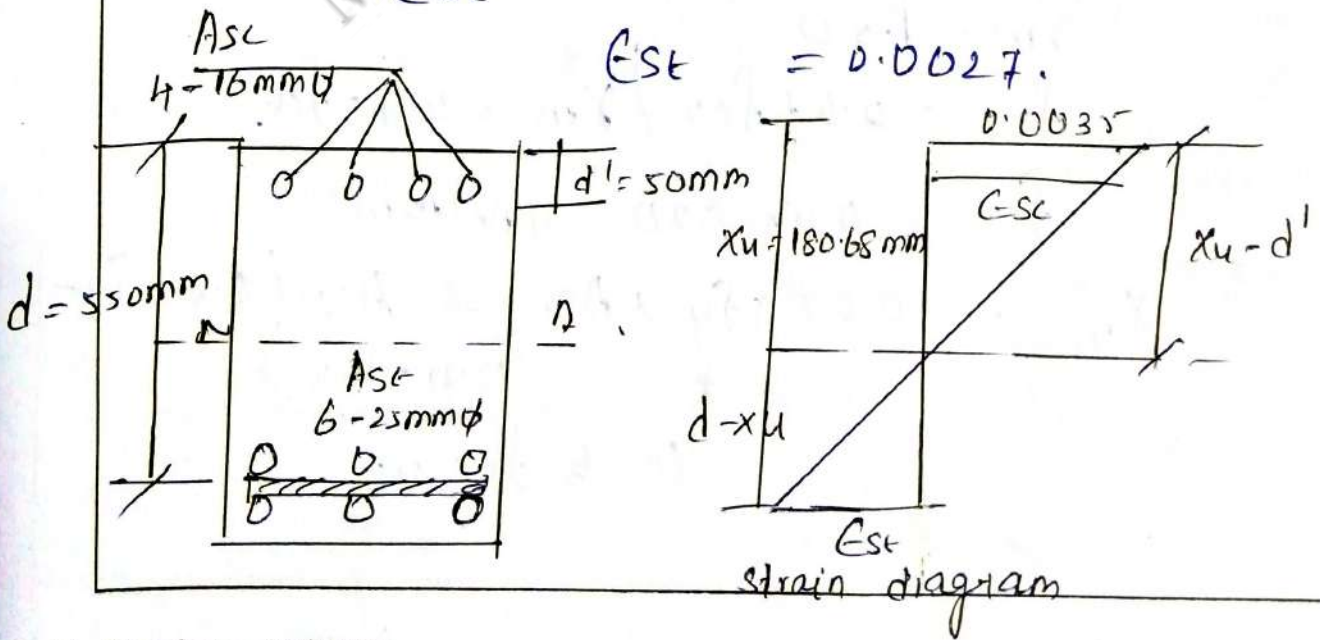 Asc
4-16mmϕ
Est = 0.0027.
0.0035
d' = 50mm
Esc
xu = 180.68 mm
xu - d'
d = 550mm
N
A
Ast
6-25mmϕ
d-xu
Est
strain diagram